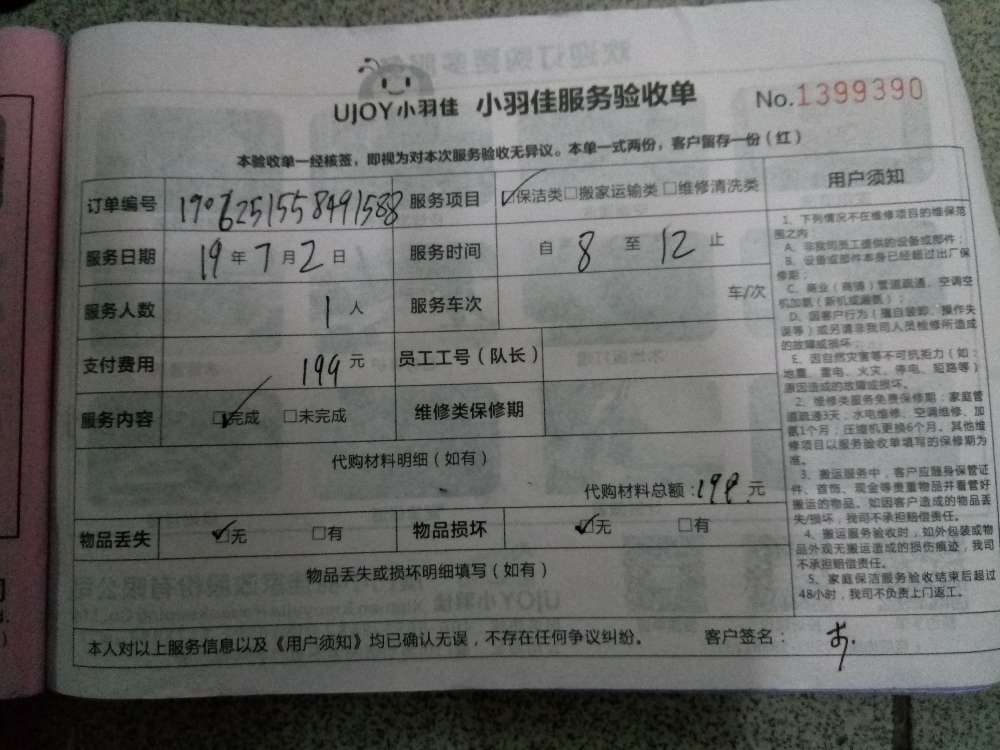 UJOY小羽佳 小羽佳服务验收单 No.1399390
本验收单一经核签，即视为对本次服务验收无异议。本单一式两份，客户留存一份（红）
订单编号 1906251558491588 服务项目 ☑保洁类□搬家运输类□维修清洗类
服务日期 19年7月2日 服务时间 自8至12止
服务人数 1人 服务车次 车/次
支付费用 199元 员工工号（队长）
服务内容 ☑完成 □未完成 维修类保修期
代购材料明细（如有）
代购材料总额：199元
物品丢失 ☑无 □有 物品损坏 ☑无 □有
物品丢失或损坏明细填写（如有）
用户须知
1、下列情况不在维修项目的维保范
围之内
A、非我司员工提供的设备或部件；
B、设备或部件本身已经超过出厂保
修期；
C、商业（商铺）管道疏通、空调空
机加氨（新机或漏氨）；
D、因客户行为（擅自装卸、操作失
误等）或另请非我司人员检修所造成
的故障或损坏；
E、因自然灾害等不可抗拒力（如：
地震、雷电、火灾、停电、短路等）
原因造成的故障或损坏。
2、维修类服务免费保修期：家庭管
道疏通3天，水电维修、空调维修、加
氨1个月；压缩机更换6个月。其他维
修项目以服务验收单填写的保修期为
准。
3、搬运服务中，客户应随身保管证
件、首饰、现金等贵重物品并看管好
搬运的物品。如因客户造成的物品丢
失/损坏，我司不承担赔偿责任。
4、搬运服务验收时，如外包装或物
品外观无搬运造成的损伤痕迹，我司
不承担赔偿责任。
5、家庭保洁服务验收结束后超过
48小时，我司不负责上门返工。
本人对以上服务信息以及《用户须知》均已确认无误，不存在任何争议纠纷。 客户签名：